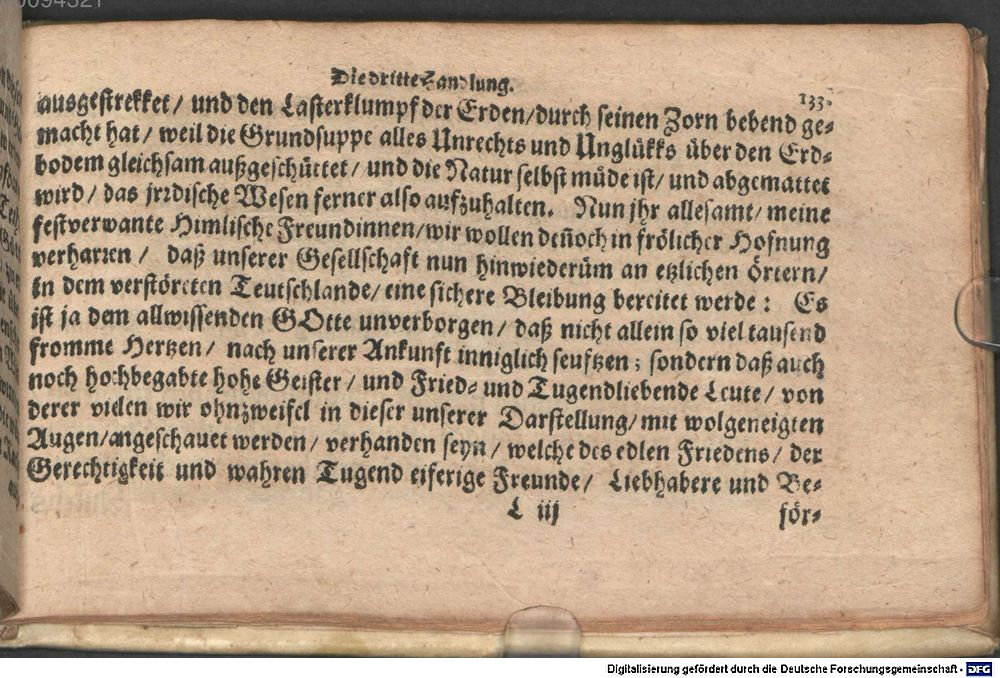 Die dritte Handlung.
133.
ausgestrekket/ und den Lasterklumpf der Erden/durch seinen Zorn bebend ge-
macht hat/ weil die Grundsuppe alles Unrechts und Unglükks über den Erd-
bodem gleichsam außgeschüttet/ und die Natur selbst müde ist/ und abgemattet
wird/ das jrrdische Wesen ferner also aufzuhalten. Nun jhr allesamt/ meine
festverwante Himlische Freundinnen/wir wollen deñoch in frölicher Hofnung
verharren/ daß unserer Gesellschaft nun hinwiederüm an etzlichen örtern/
in dem verstöreten Teutschlande/ eine sichere Bleibung bereitet werde: Es
ist ja dem allwissenden GOtte unverborgen/ daß nicht allein so viel tausend
fromme Hertzen/ nach unserer Ankunft inniglich seuftzen; sondern daß auch
noch hochbegabte hohe Geister/ und Fried- und Tugendliebende Leute/ von
derer vielen wir ohnzweifel in dieser unserer Darstellung/ mit wolgeneigten
Augen/angeschauet werden/ verhanden seyn/ welche des edlen Friedens/ der
Gerechtigkeit und wahren Tugend eiferige Freunde/ Liebhabere und Be-
L iij
för-
Digitalisierung gefördert durch die Deutsche Forschungsgemeinschaft - DFG